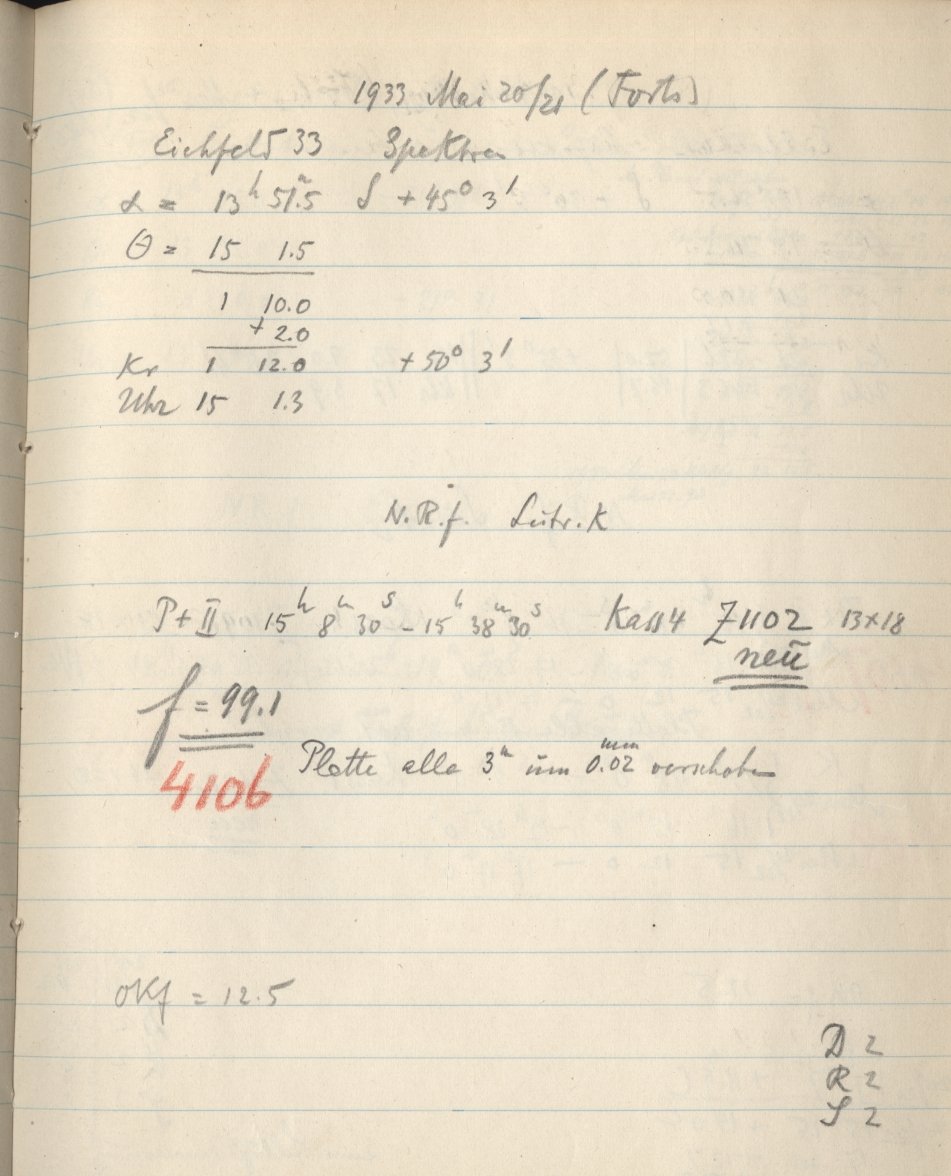 1933 Mai 20/21 (Forts)
Eichfeld 33 Spektren
α = 13ʰ 51ᵐ.5 δ +45° 3'
Θ = 15 1.5
1 10.0
+ 2.0
Kr 1 12.0 +50° 3'
Uhr 15 1.3
N.R.f. Lütr. K
P+ II 15ʰ 8ᵐ 30ˢ – 15ʰ 38ᵐ 30ˢ Kass 4 Z1102 13×18
neü
f = 99.1
4106 Platte alle 3ᵐ üm 0.02 mm verschoben
OKf = 12.5
D 2
R 2
S 2